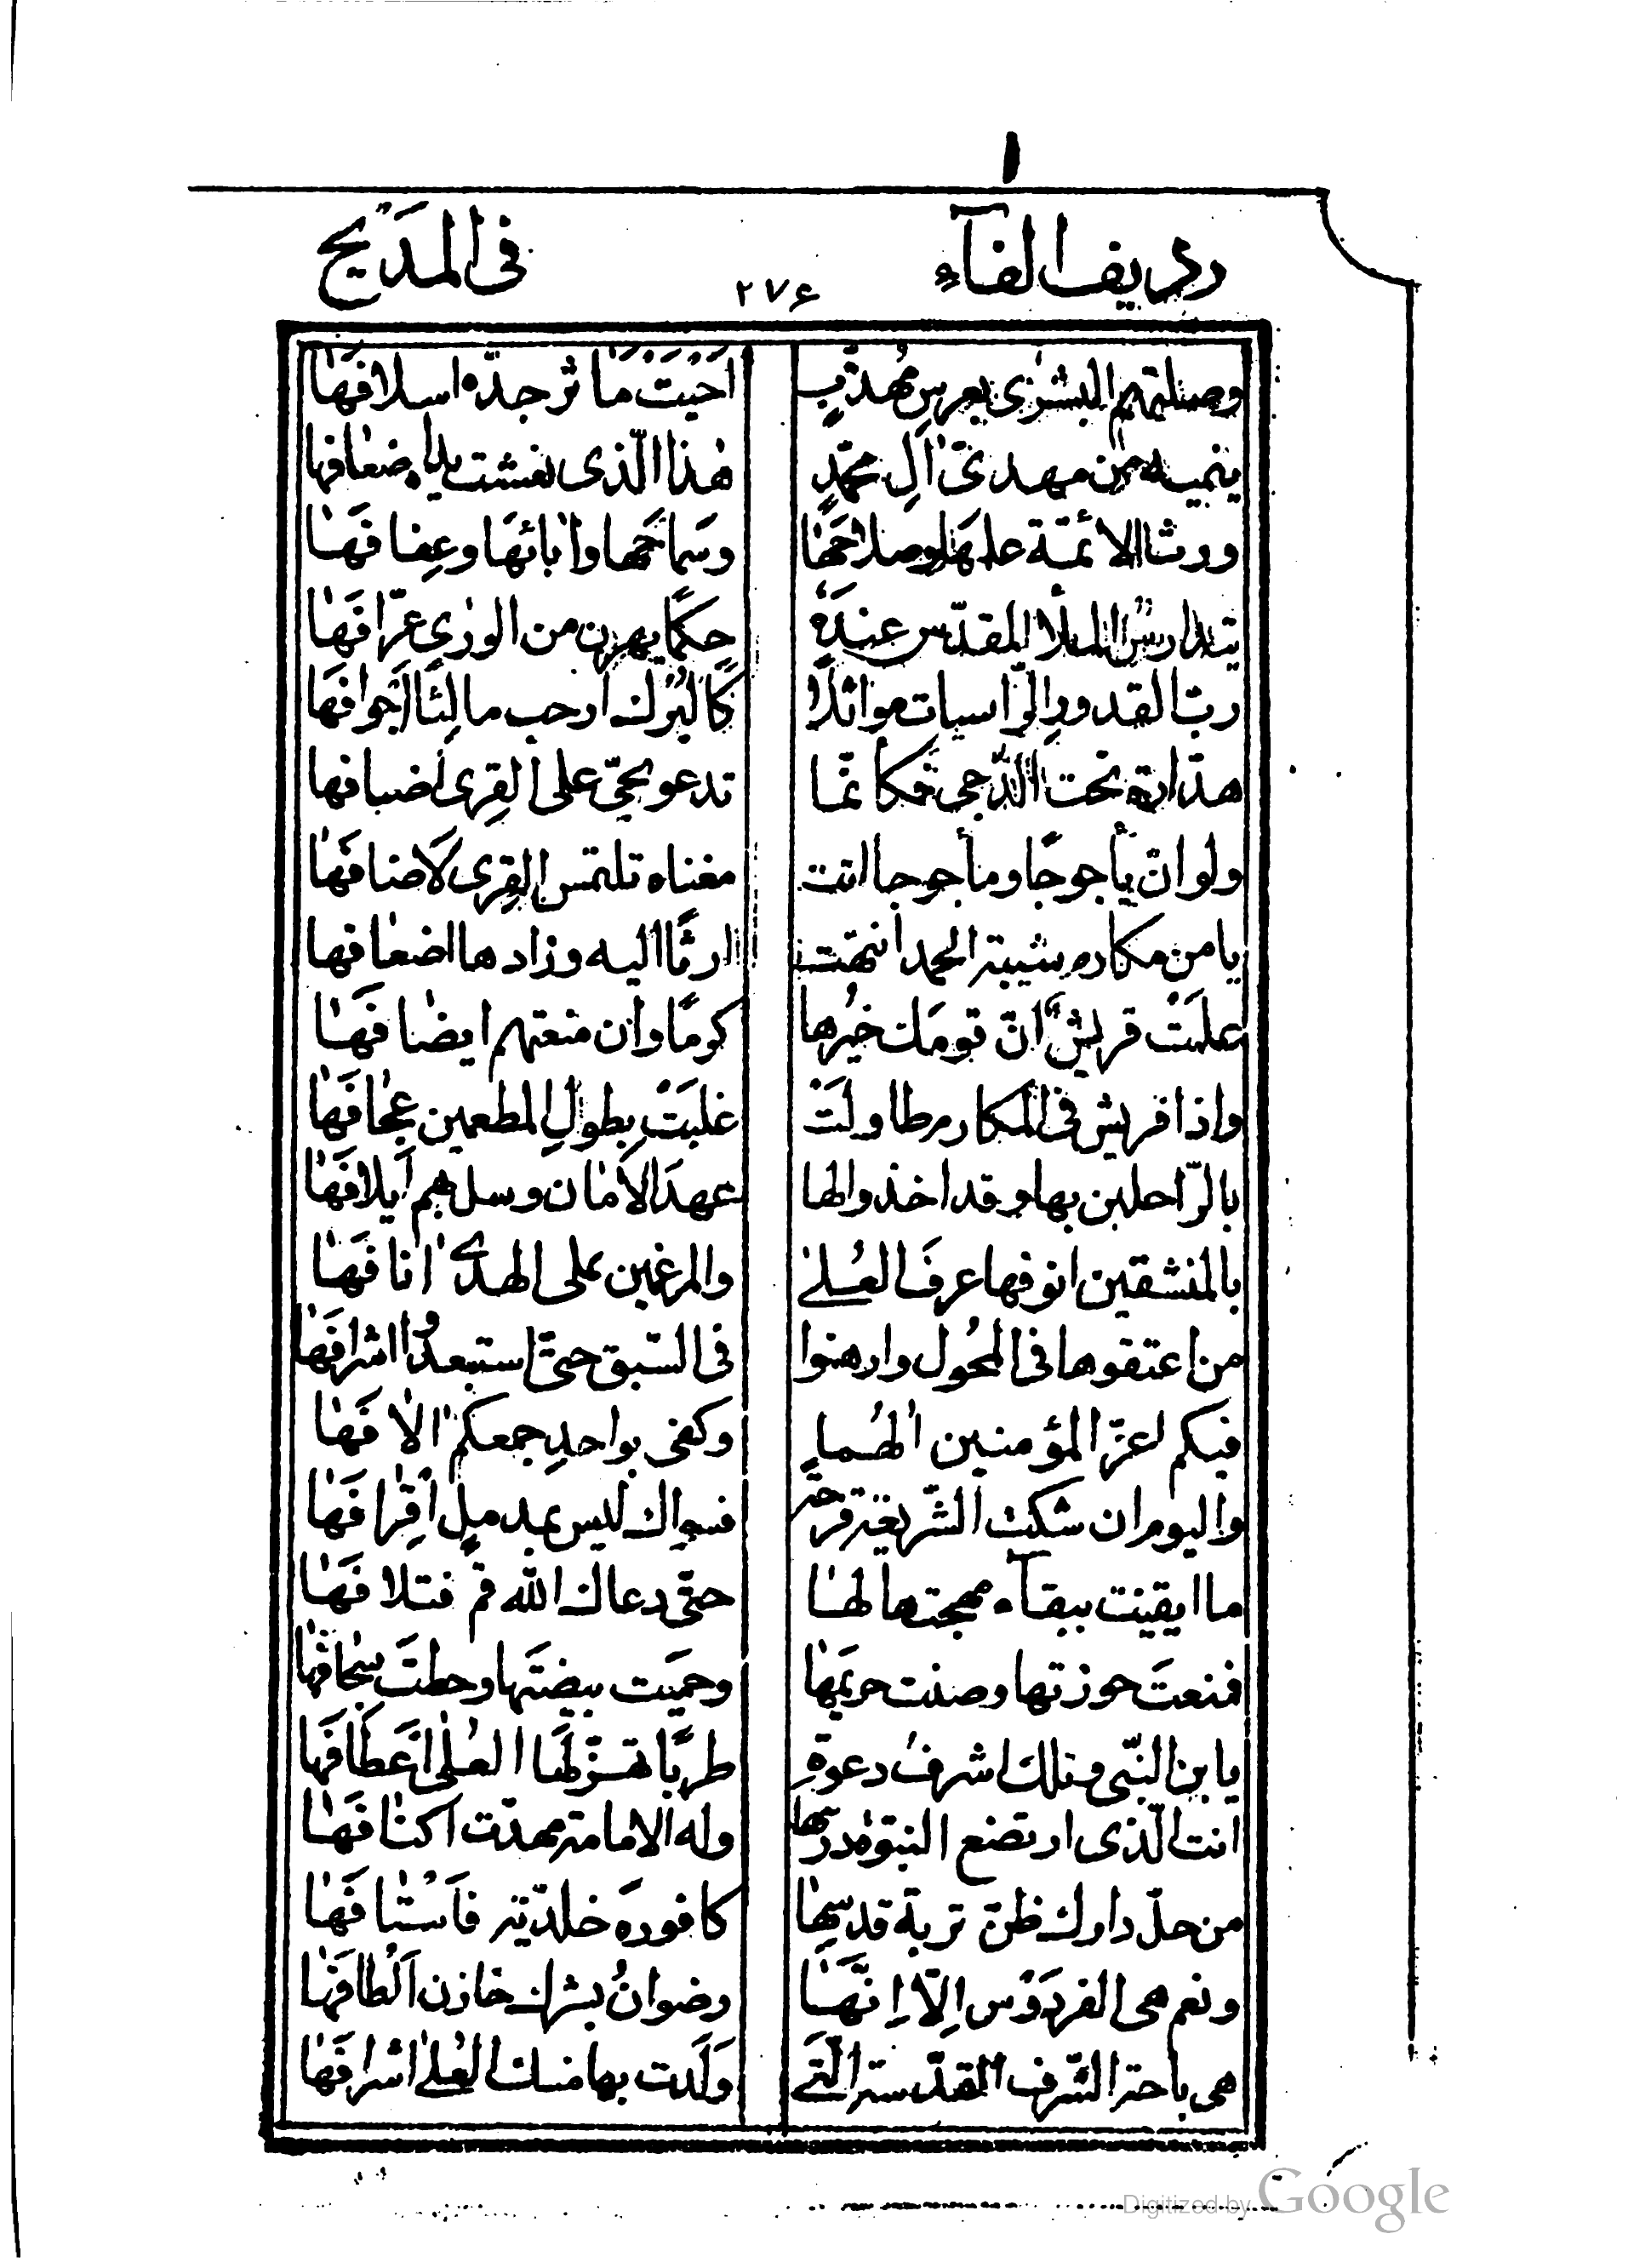 رديف الفآء ٢٧۶ فى المَديح
وصلتهم البشرٰى بعرسِ مُهذّبٍ اَحْيَتْ مَاٰثر جدّه اسلافَهٰا
ينميه من مهدىّ اٰلِ محمّدٍ هٰذا الّذى نعشت يداه ضعافها
ورث الائمّة علمَهَا وصلاحَهٰا وسَماحَها واِبائهَا وعِفافَهٰا
يتدارسُ الملأ المقدّس عندَهُ حِكَمًا يهرن من الورٰى عرّافَهٰا
ربّ القدورِ الرّاسيات مواثلًا كالبُرك ارحب مالِئًا اَجْوافَهٰا
هدّارة تحت الدّجى فكأنّما تدعو بحىّ على القِرى اَضيافها
ولو انّ يأجوجًا ومأجوجا اتت مغناه تلتمس القِرى لَاَضافَهٰا
يا من مكارم شيبة الحمد انتهت ارثًا اليه وزادها اضعٰافها
علمَتْ قريشٌ انّ قومَك خيرُها كرمًا وان منعتهم ايضٰافَهٰا
واذا قريش فى المكارم طاولَتْ غلبَتْ بِطولِ المطعمين عجٰافَهٰا
بالرّاحلين بها وقد اخذوا لها عهدَ الاَمٰان وسل بهم اَيلافَهٰا
بالمنشقين انوفها عرفَ العُلىٰ والمرغمين على الهدىٰ اٰنافَهٰا
من اعتقوها فى المحُول وارهنوا فى السّبق حتّى استبعدُوا اشرافَهٰا
فيكم اعزّ المؤمنين الهُما وكفى بواحدِ جمعكم اٰلافَهٰا
واليوم ان شكت الشّريعة قرحة فسواك ليس بمدملٍ اَقِرافَهٰا
ما ايقنت ببقآء مهجتها لهٰا حتّى دعاك الله قم فتلافَهٰا
فمنعتَ حوزتها وصنت حريمَهٰا وحميت بيضتَها وحطتَ سِجٰافَهٰا
يا بن النّبى وتلك اشرفُ دعوةٍ طربًا تهزّ لَهَا العُلىٰ اَعطافَهٰا
انت الّذى ارتضع النبوّة درّها وله الامامة مهّدت اكنٰافَهٰا
من حلّ دارك ظنّ تربة قدسِهٰا كافورة خلديّة فاَسْتٰافَهٰا
ونعم هى الفردَوْس اِلّا اِنّهَٰا رضوانُ بشرك خازن اَلْطافَهٰا
هى باحة الشّرف المقدّسة الّتى وَلَدت بها منك العُلىٰ اشرافَهٰا
Digitized by Google